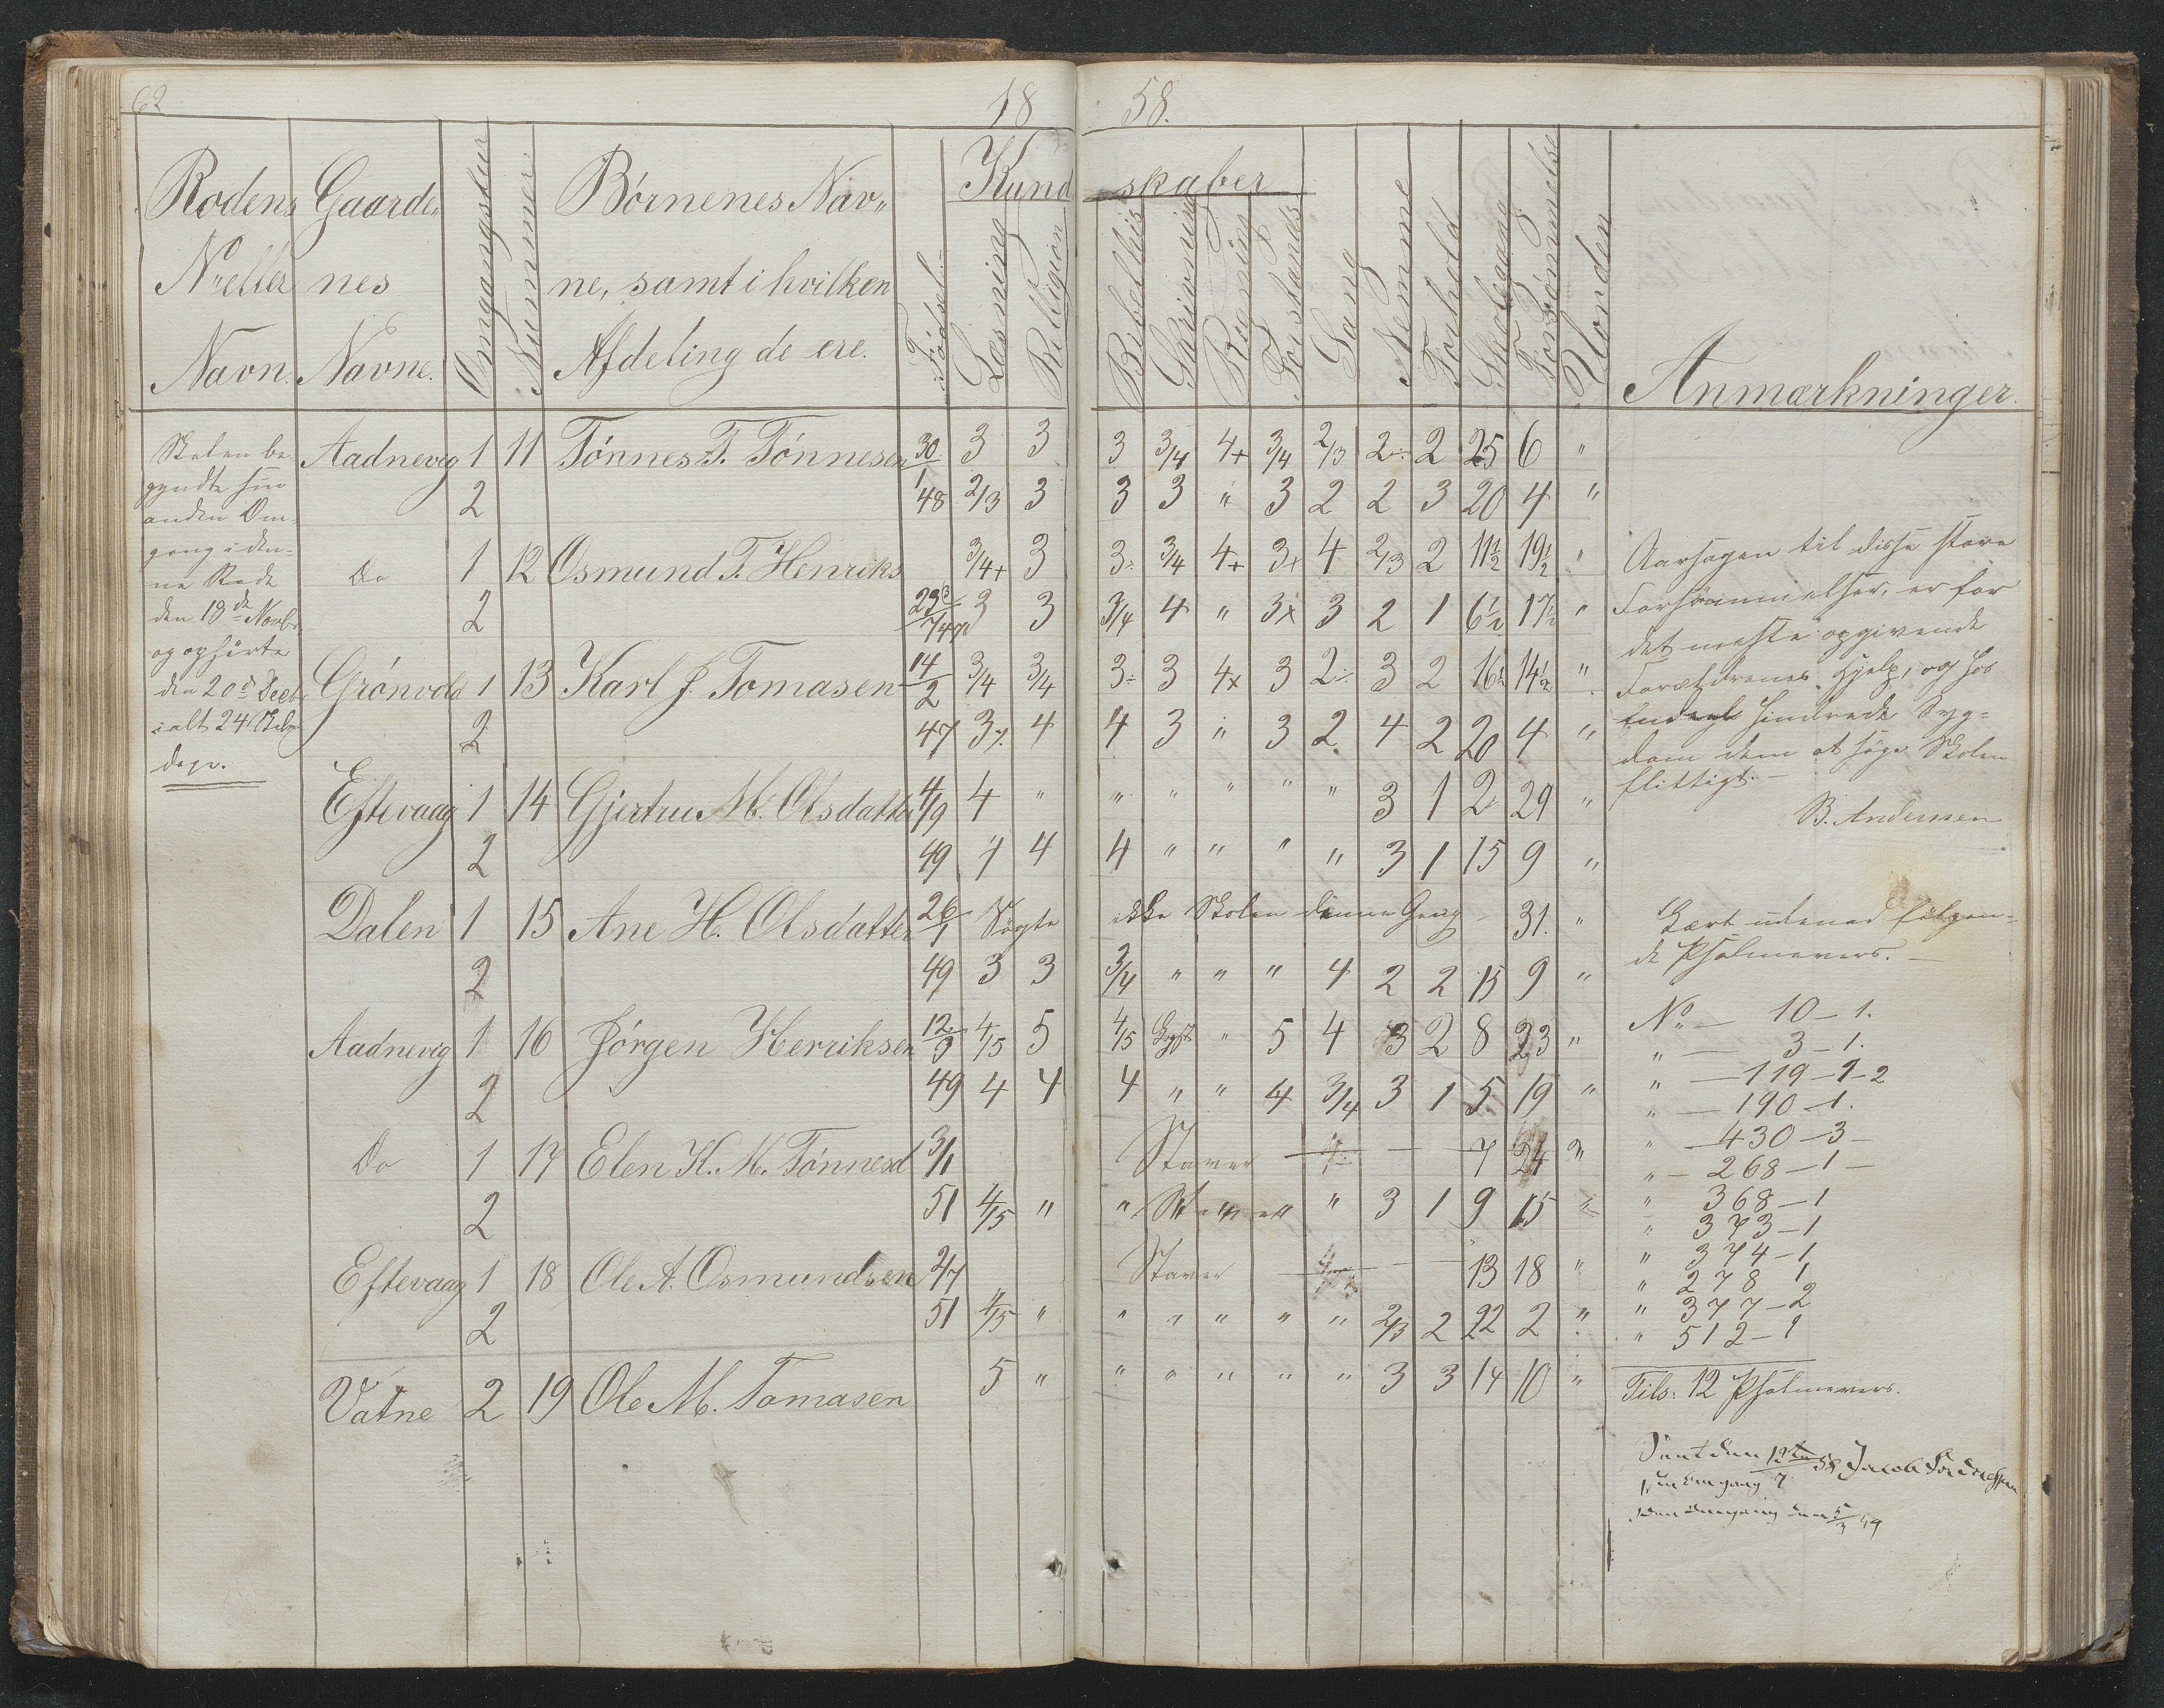 62
18 58.
Rodens Gaarde„ Omgangstur Nummer. Børnenes Nav„ Fødsel. Kundskaber
Nº eller nes ne, samt i hvilken Læsning Religion Bibelhis Skrivning Regning Forstands Sang Nemme Forhold Skolegang Forsømmelse Uorden
Navn. Navne. Afdeling de ere. Anmærkninger.
Skolen be-
gyndte sin
anden Om-
gang i den-
ne Rode
den 18de Novbr
og ophørte
den 20de Decbr
i alt 24 Skole
dage.
Aadnevig 1 11 Tønnes T. Tønnesen 30/1 3 3 3 3/4 4+ 3/4 2/3 2÷ 2 25 6 "
2 48 2/3 3 3 3 " 3 2 2 3 20 4 "
Do 1 12 Osmund T. Henriks 3/4+ 3 3÷ 3/4 4+ 3+ 4 2/3 2 11½ 19½ "
2 23/7 47 3 3 3/4 4 " 3x 3 2 1 6½ 17½ "
Grønvold 1 13 Karl J. Tomasen 14/2 3/4 3/4 3÷ 3 4x 3 2÷ 3 2 16½ 14½ "
2 47 3 4 4 3 " 3 2 4 2 20 4 "
Eftevaag 1 14 Gjertru M. Olsdatter 4/9 4 " " " " " " 3 1 2 29 "
2 49 4 4 4 " " " " 3 1 15 9 "
Dalen 1 15 Ane H. Olsdatter 26/1 Søgte ikke Skolen denne Gang - 31. "
2 49 3 3 3/4 " " " 4 2 2 15 9 "
Aadnevig 1 16 Jørgen Henriksen 12/9 4/5 5 4/5 " 5 4 3 2 8 23 "
2 49 4 4 4 " " 4 3/4 3 1 5 19 "
Do 1 17 Elen K. M. Tønnesd 3/11 Staver 7 24 "
2 51 4/5 " " Staver " 3 1 9 15 "
Eftevaag 1 18 Ole A. Osmundsen 2/7 Staver 13 18 "
2 51 4/5 " " " " " " 2/3 2 22 2 "
Vatne 2 19 Ole M. Tomasen 5 " " " " " " 3 3 14 10 "
Aarsagen til disse store
Forsømmelser, er for
det meste opgivende
Forældrenes Hjelp, og hos
Endeel hindrede Syg-
dom dem at søge Skolen
flittigt.-
B. Andersen
Lært udenad følgen-
de Psalmevers.-
No - 10-1.
" - 3-1.
" - 119-1-2
" - 190-1.
" - 430-3-
" - 268-1-
" 368-1
" 373-1
" 374-1
" 278 1
" 377-2
" 512-1
Tils: 12 Psalmevers.
Seet den 12te/7 58 Jacob
1ste Omgang
2den Omgang den 5/3 59